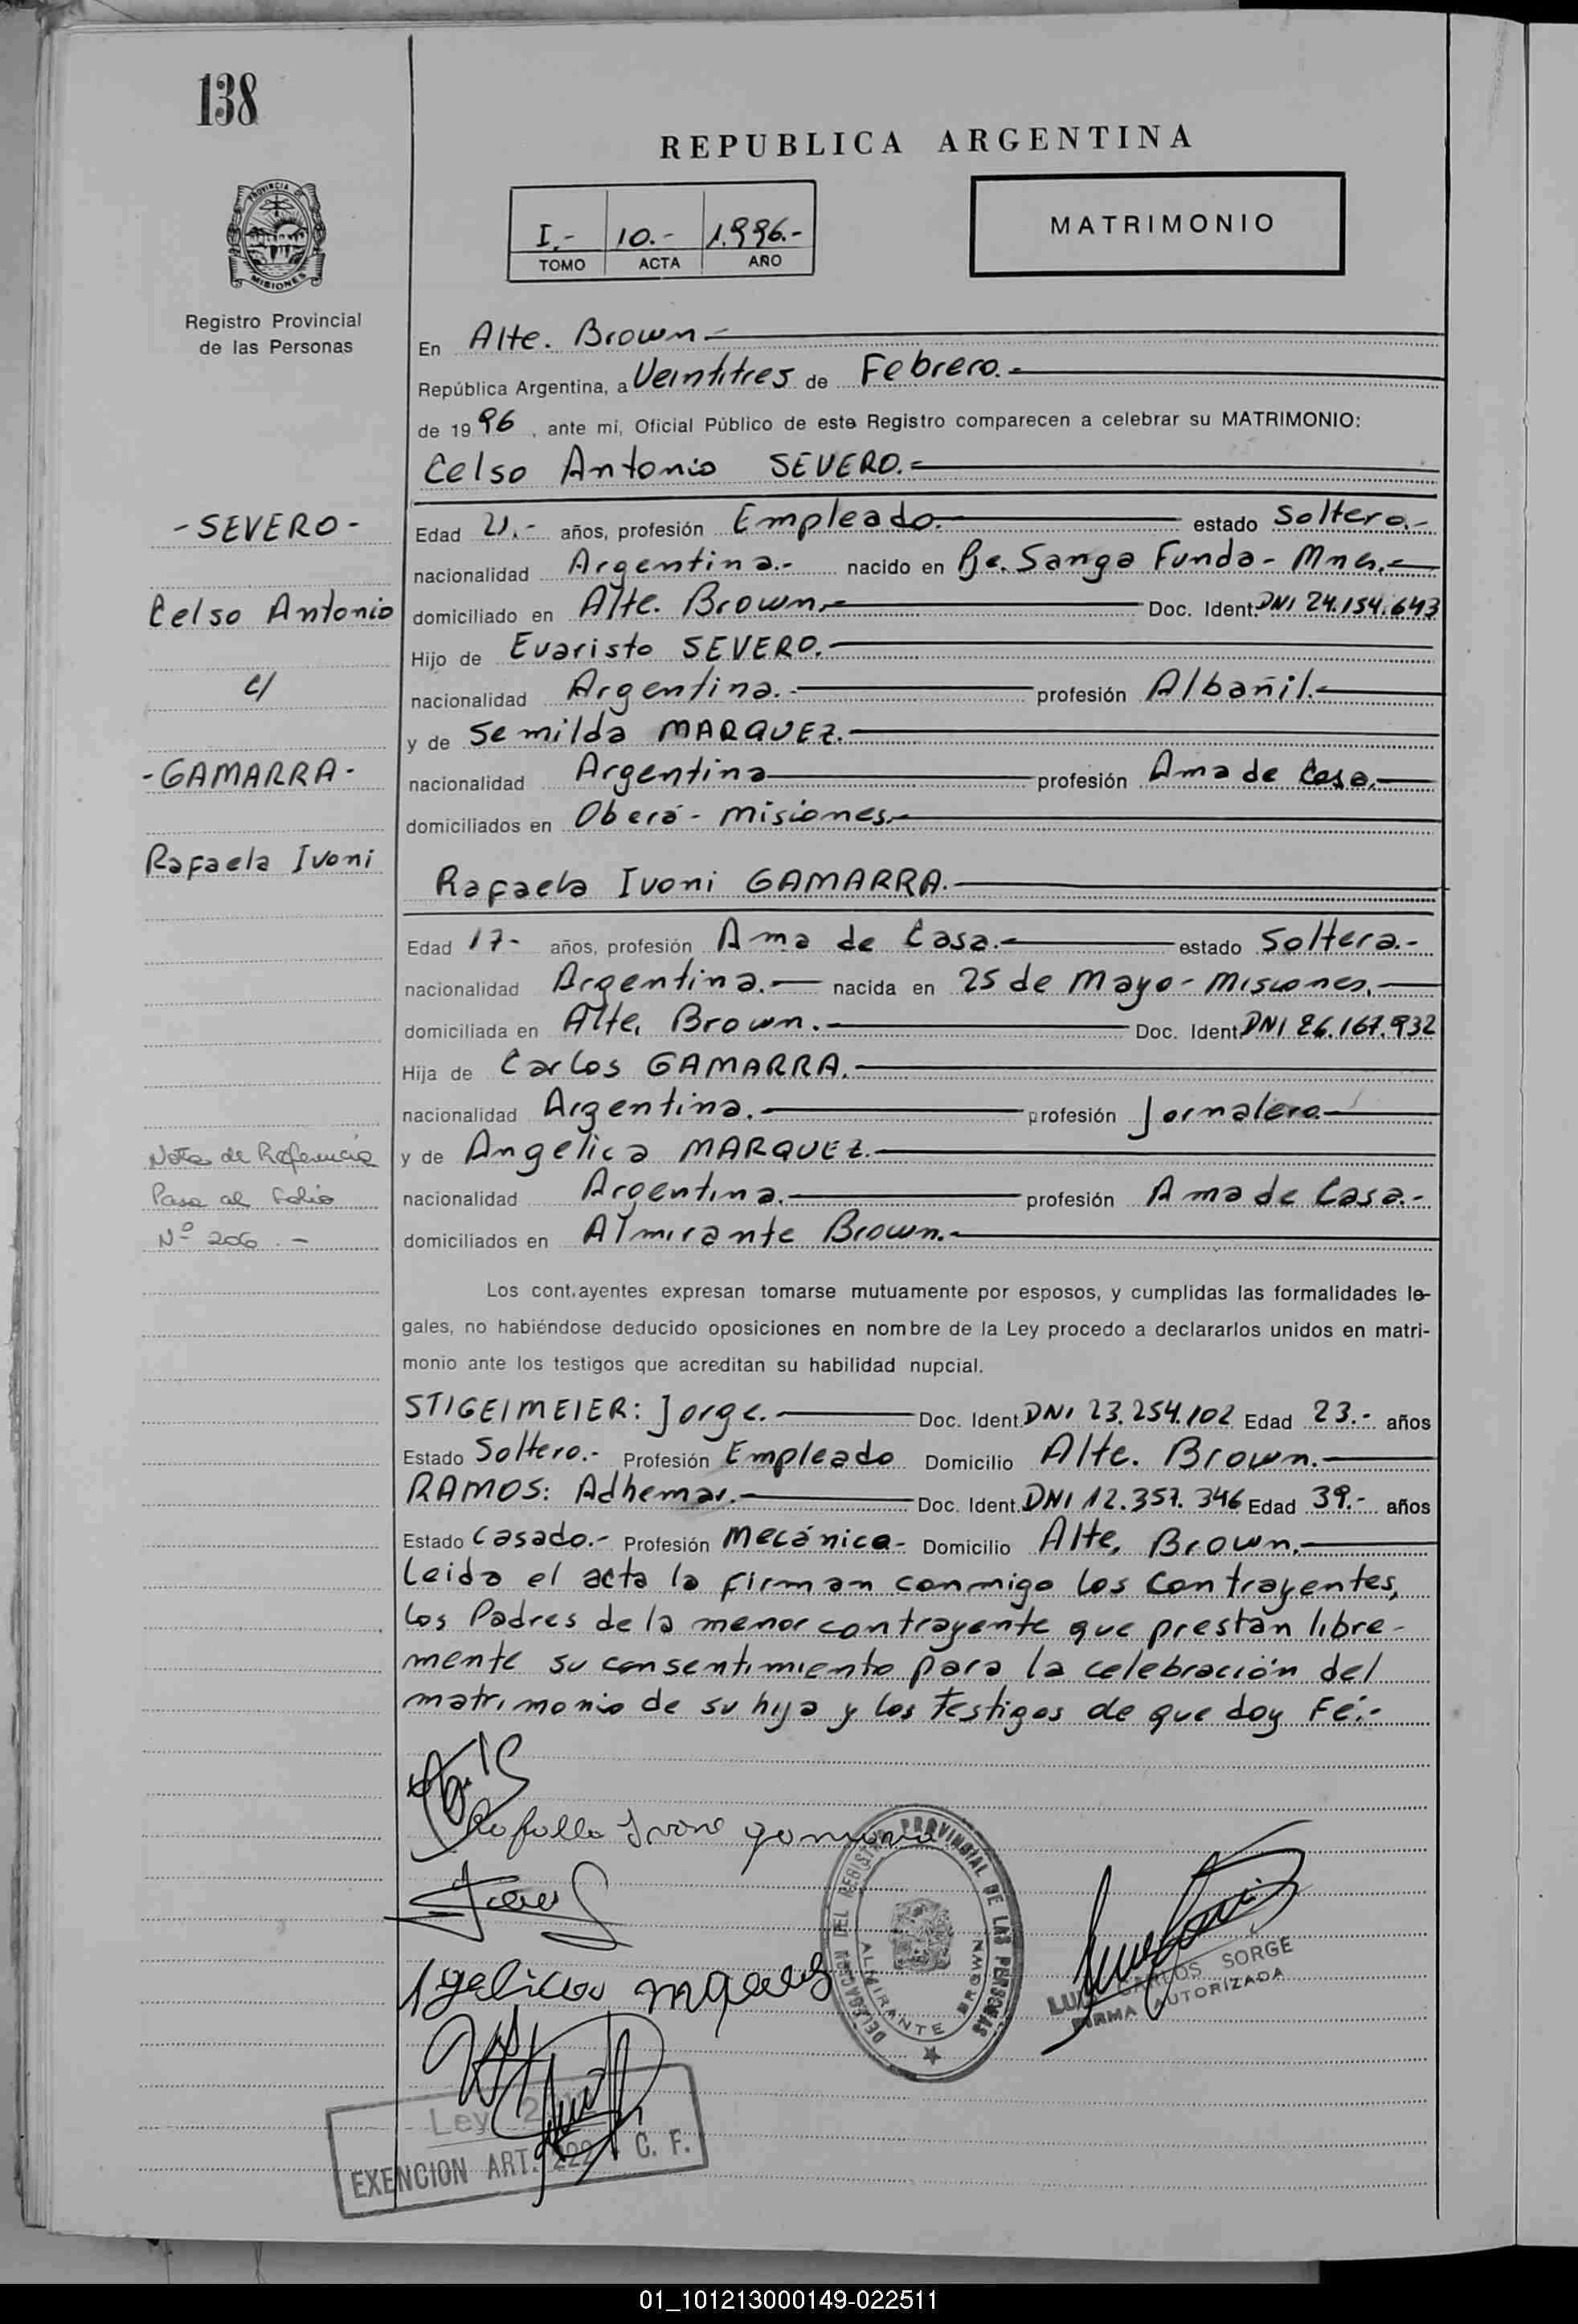 138
REPUBLICA ARGENTINA
I.- 10.- 1.996.-
TOMO ACTA AÑO
MATRIMONIO
PROVINCIA DE
MISIONES
Registro Provincial
de las Personas
En Alte. Brown.-
República Argentina, a Veintitres de Febrero.-
de 1996, ante mí, Oficial Público de este Registro comparecen a celebrar su MATRIMONIO:
Celso Antonio SEVERO.-
- SEVERO -
Celso Antonio
c/
- GAMARRA -
Rafaela Ivoni
Edad 21.- años, profesión Empleado.- estado Soltero.-
nacionalidad Argentina.- nacido en Pje. Sanga Funda - Mnes.-
domiciliado en Alte. Brown.- Doc. Ident. DNI 24.154.643
Hijo de Evaristo SEVERO.-
nacionalidad Argentina.- profesión Albañil.-
y de Semilda MARQUEZ.-
nacionalidad Argentina profesión Ama de Casa.-
domiciliados en Oberá - Misiones.-
Rafaela Ivoni GAMARRA.-
Edad 17- años, profesión Ama de Casa.- estado Soltera.-
nacionalidad Argentina.- nacida en 25 de Mayo - Misiones.-
domiciliada en Alte. Brown.- Doc. Ident. DNI 26.167.932
Hija de Carlos GAMARRA.-
nacionalidad Argentina.- profesión Jornalero.-
y de Angelica MARQUEZ.-
nacionalidad Argentina.- profesión Ama de Casa.-
domiciliados en Almirante Brown.-
Nota de Referencia
Pasa al Folio
Nº 206.-
Los contrayentes expresan tomarse mutuamente por esposos, y cumplidas las formalidades le-
gales, no habiéndose deducido oposiciones en nombre de la Ley procedo a declararlos unidos en matri-
monio ante los testigos que acreditan su habilidad nupcial.
STIGELMEIER: Jorge.- Doc. Ident. DNI 23.254.102 Edad 23.- años
Estado Soltero.- Profesión Empleado Domicilio Alte. Brown.-
RAMOS: Adhemar.- Doc. Ident. DNI 12.357.346 Edad 39.- años
Estado Casado.- Profesión Mecánico- Domicilio Alte. Brown.-
Leida el acta la firman conmigo los Contrayentes,
los Padres de la menor contrayente que prestan libre-
mente su consentimiento para la celebración del
matrimonio de su hija y los testigos de que doy Fé.-
DELEGACION DEL REGISTRO PROVINCIAL DE LAS PERSONAS
ALMIRANTE BROWN
LUIS CARLOS SORGE
FIRMA AUTORIZADA
Ley
EXENCION ART. 222 C. F.
01_101213000149-022511